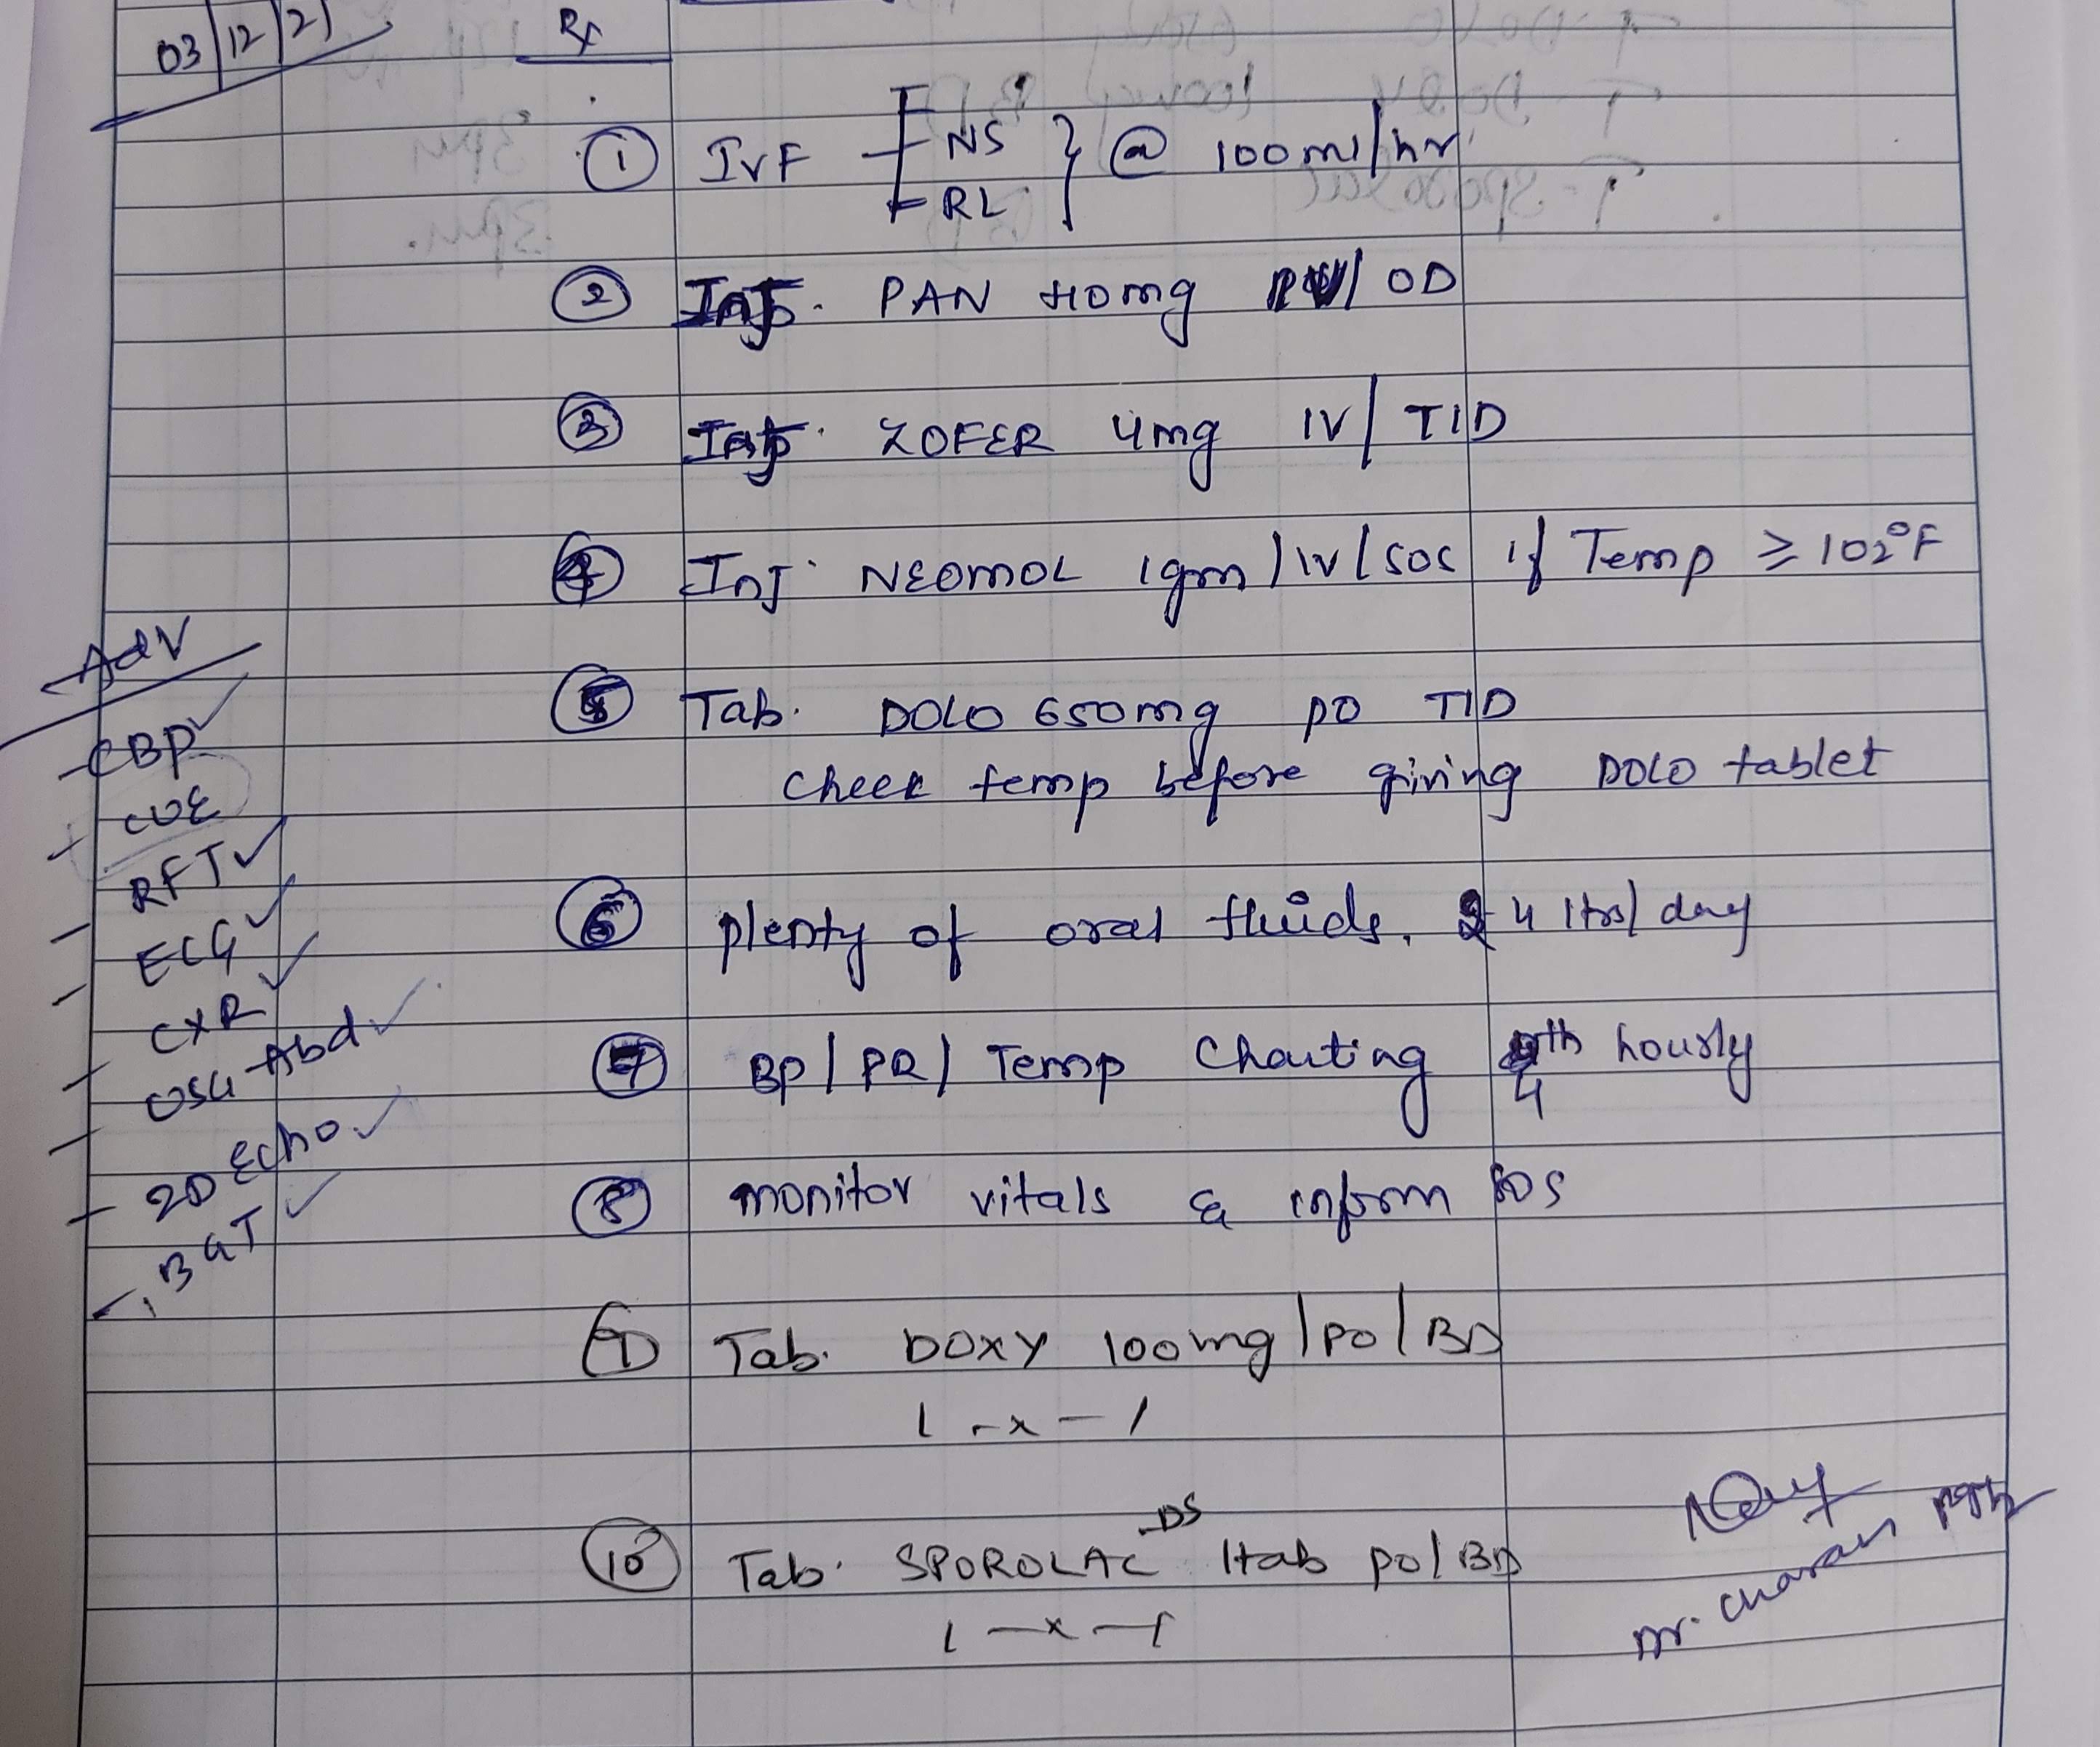 03/12/21
Rx
① IVF NS @ 100ml/hr
RL
② Inj. PAN 40mg IV/ OD
③ Inj. ZOFER 4mg IV/ TID
④ Inj. NEOMOL 1gm/IV/SOS if Temp ≥ 102°F
⑤ Tab. DOLO 650mg PO TID
Check temp before giving DOLO tablet
⑥ plenty of oral fluids, 4 ltrs/day
⑦ BP/PR/ Temp Charting 4th hourly
⑧ monitor vitals & inform SOS
⑨ Tab. DOXY 100mg/PO/BD
1 - x - 1
⑩ Tab. SPOROLAC-DS 1tab po/BD
1 - x - 1
Adv
- CBP ✓
- CUE
- RFT ✓
- ECG ✓
- CXR ✓
- USG Abd ✓
- 2D Echo ✓
- BGT ✓
Dr. Charan